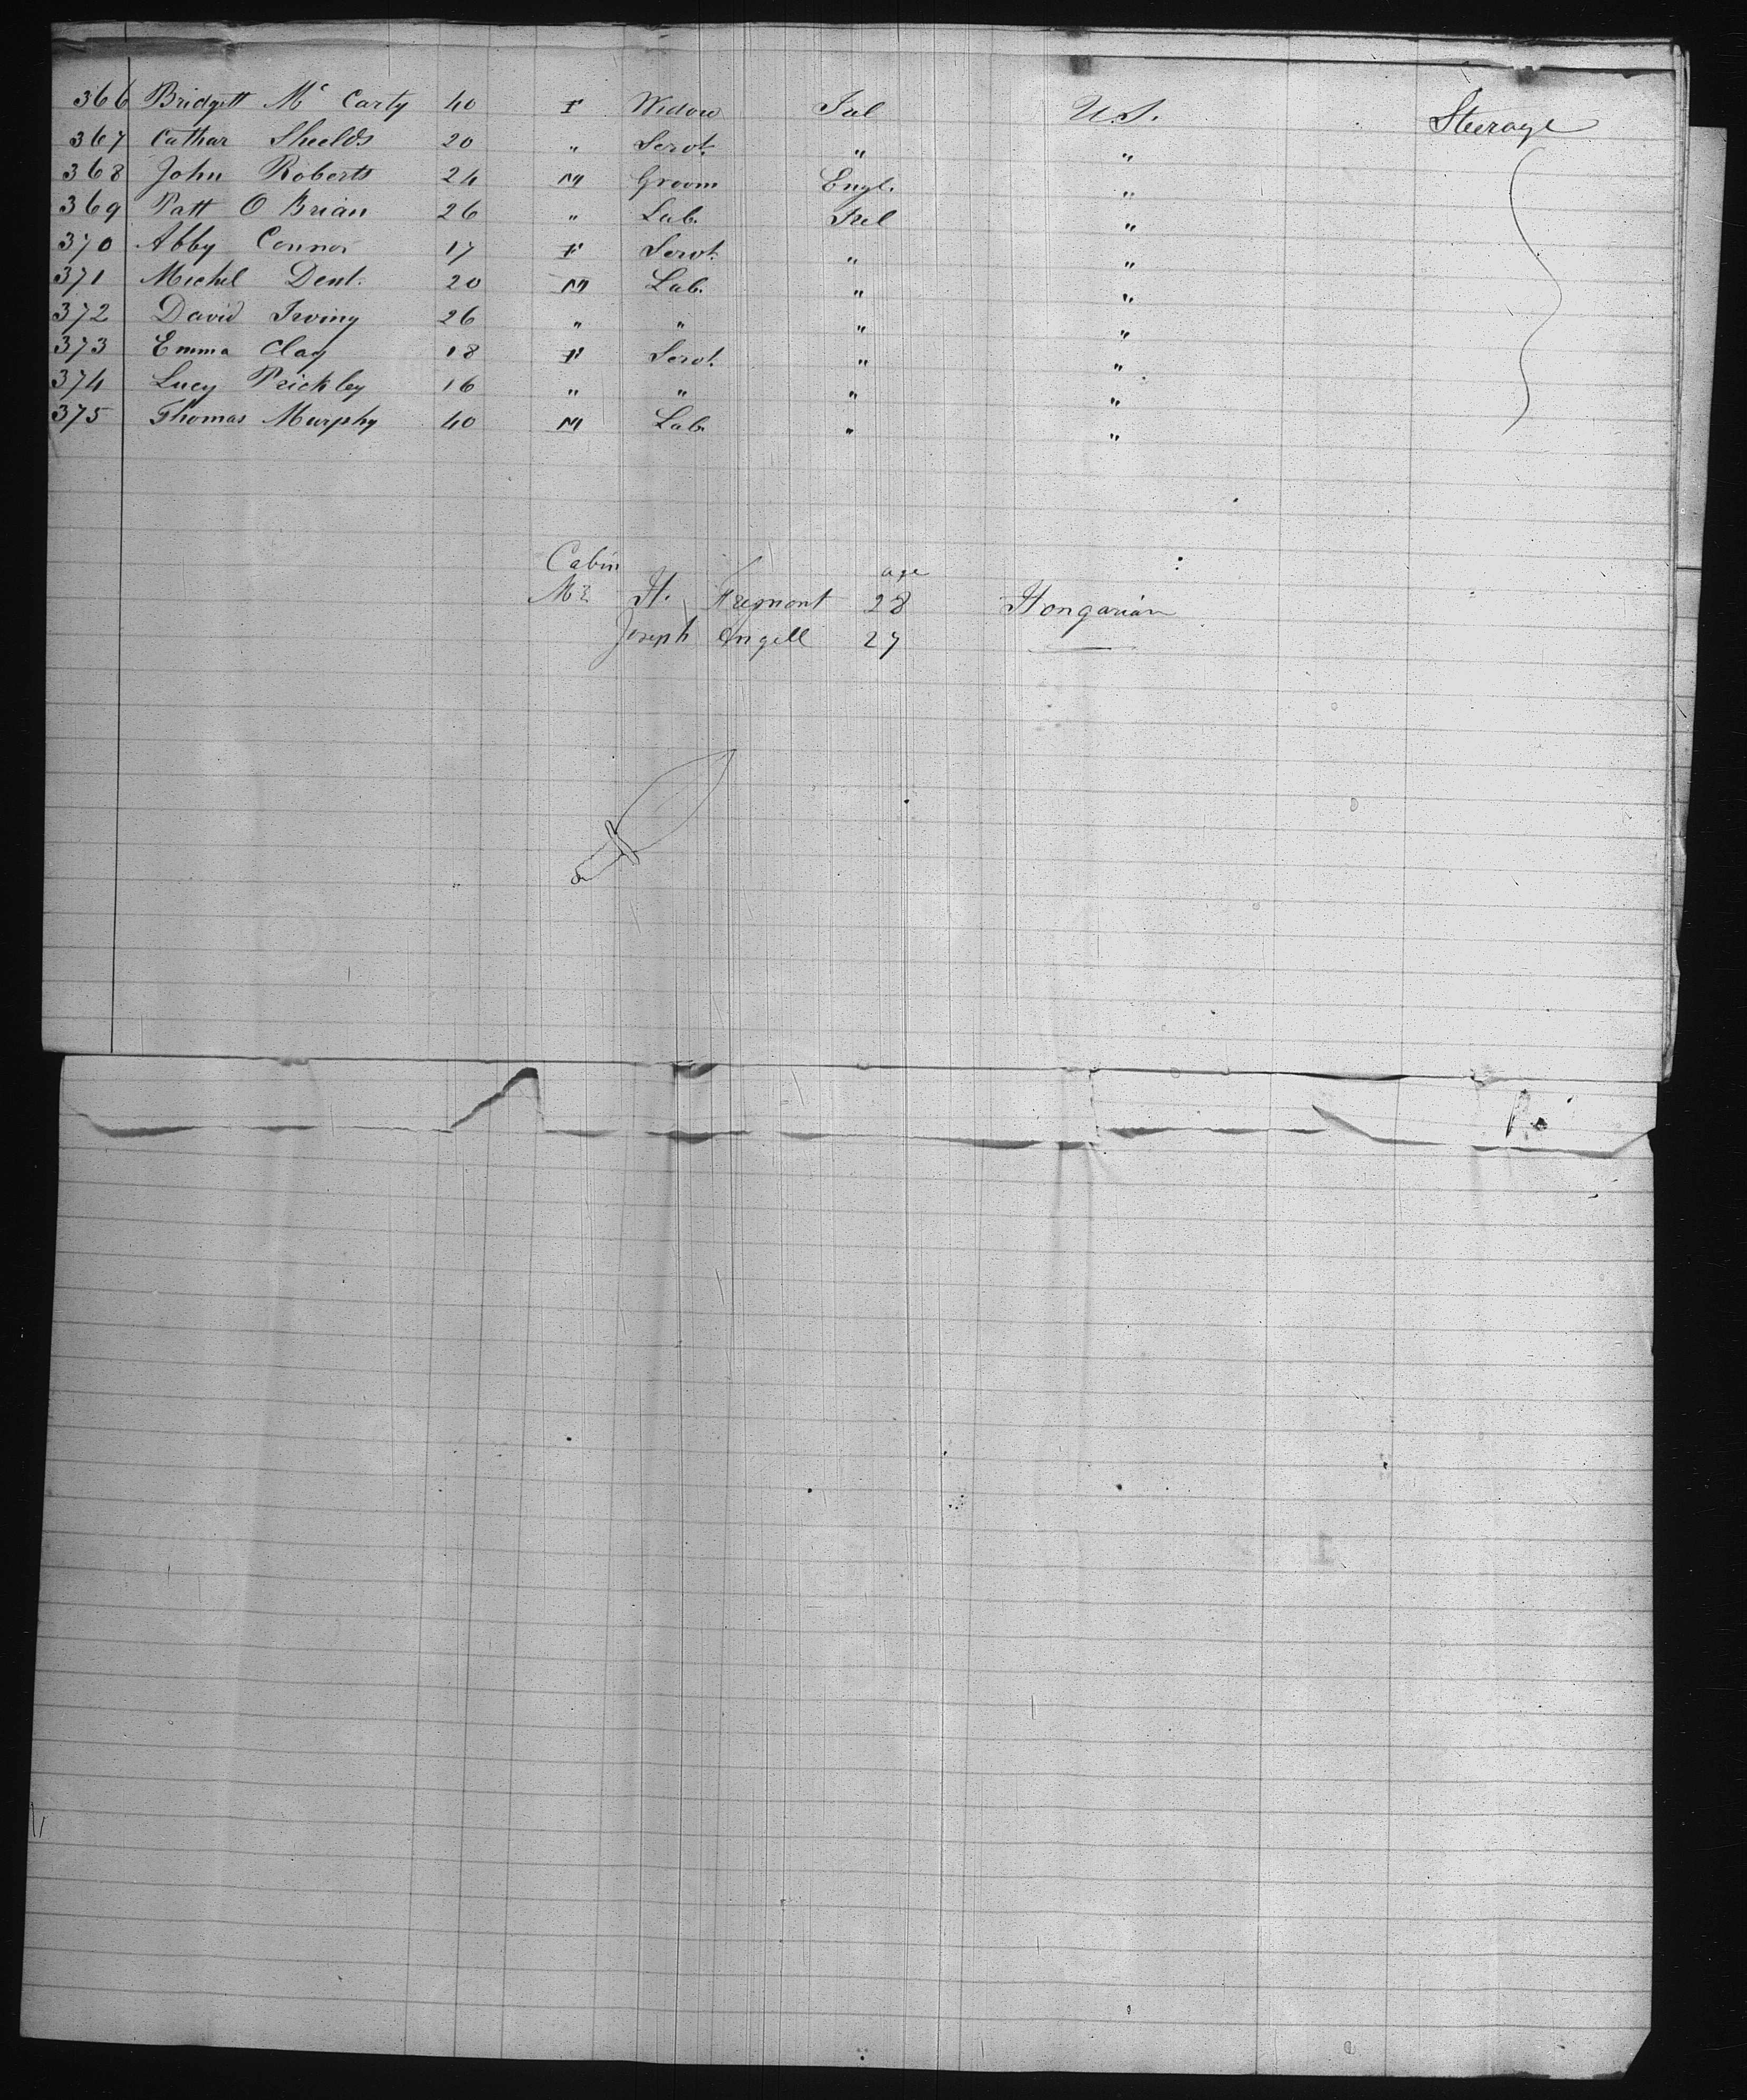 366 Bridgett Mc Carty 40 F Widow Irl U.S. Steerage
367 Cathar Sheelds 20 " Servt. " "
368 John Roberts 24 M Groom Engl. "
369 Patt O Brian 26 " Lab. Irel "
370 Abby Connor 17 F Servt. " "
371 Michel Dent. 20 M Lab. " "
372 David Irving 26 " " " "
373 Emma Clay 18 F Servt. " "
374 Lucy Prickley 16 " " " "
375 Thomas Murphy 40 M Lab. " "
Cabin age
Mr H. 28 Hongarian
Joseph Engell 27 —